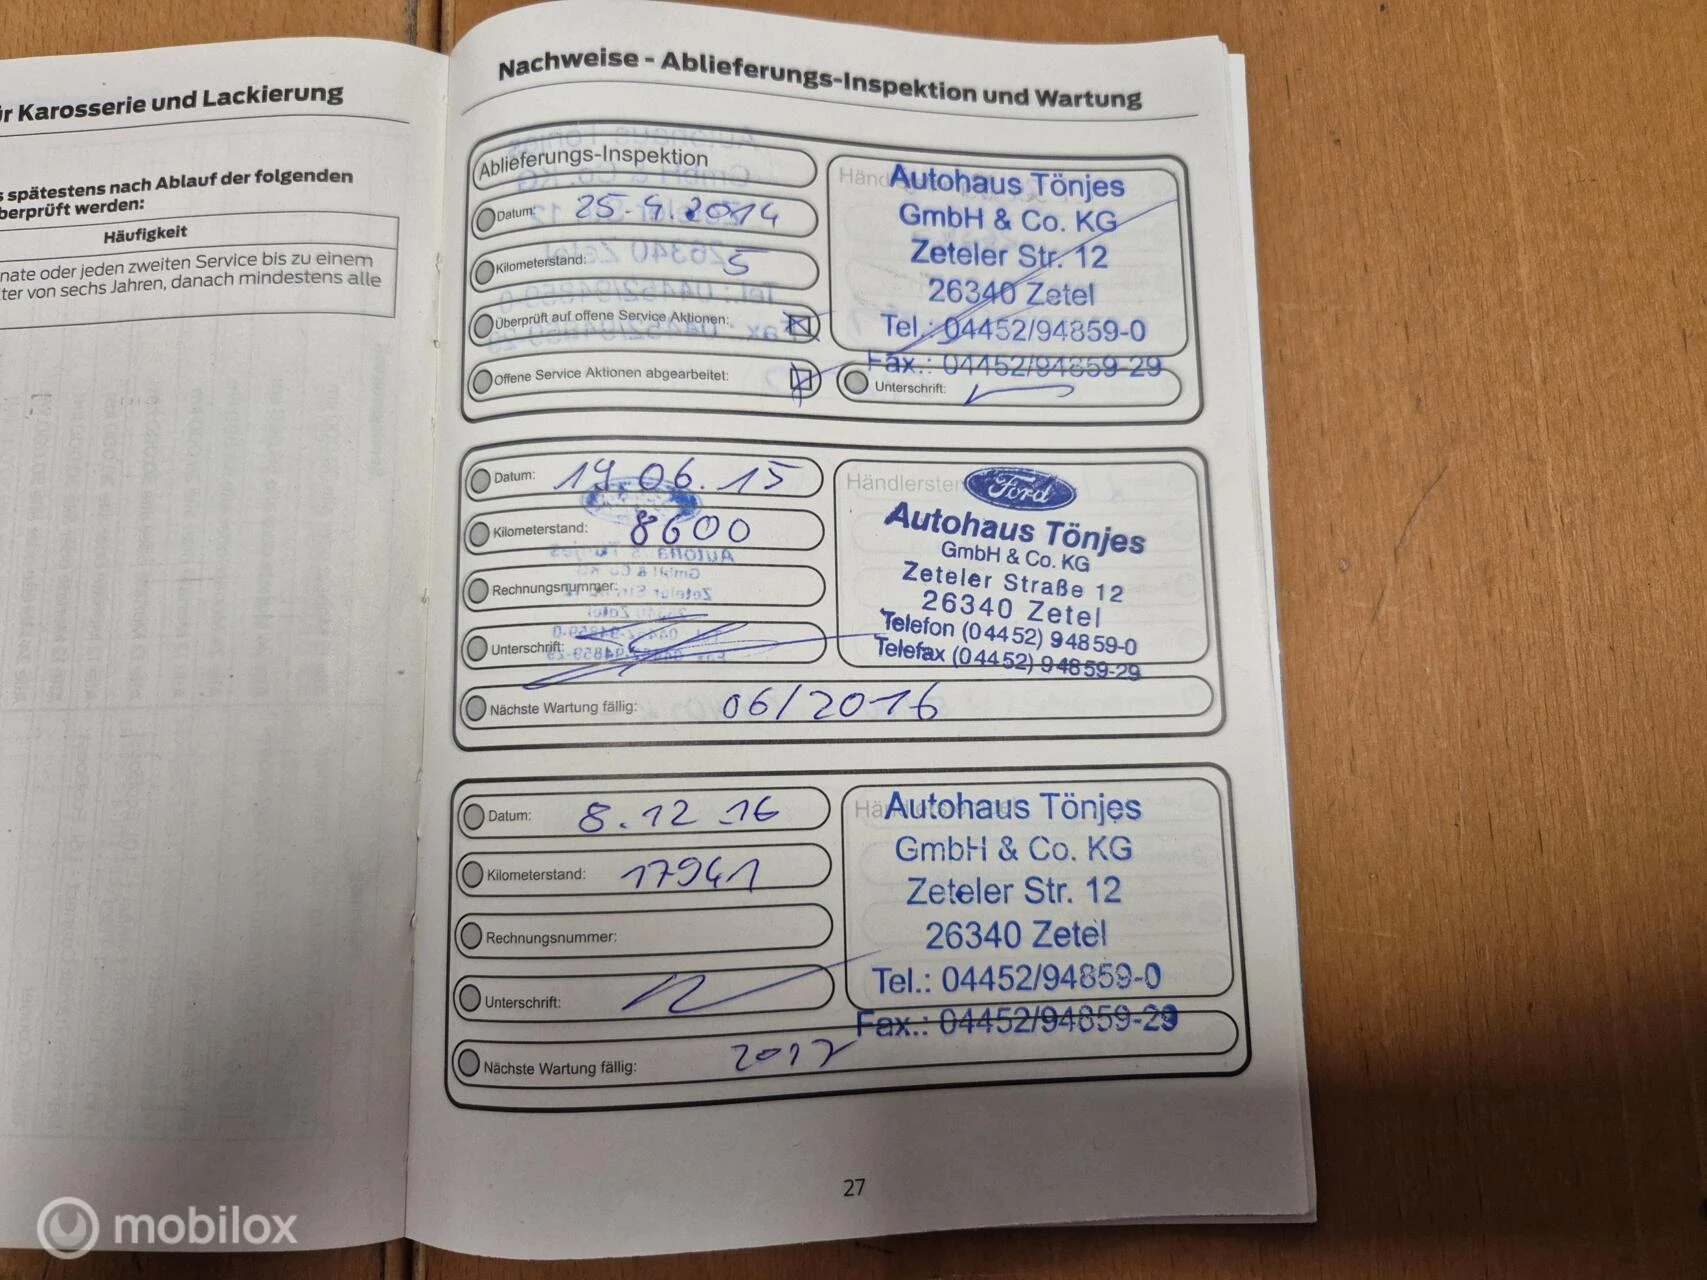 ür Karosserie und Lackierung
s spätestens nach Ablauf der folgenden
berprüft werden:
Häufigkeit
nate oder jeden zweiten Service bis zu einem
ter von sechs Jahren, danach mindestens alle
Nachweise - Ablieferungs-Inspektion und Wartung
Ablieferungs-Inspektion
Datum: 25.4.2014
Kilometerstand: 5
Überprüft auf offene Service Aktionen:
Offene Service Aktionen abgearbeitet:
Händ
Autohaus Tönjes
GmbH & Co. KG
Zeteler Str. 12
26340 Zetel
Tel.: 04452/94859-0
Fax.: 04452/94859-29
Unterschrift:
Datum: 19.06.15
Kilometerstand: 8600
Rechnungsnummer:
Unterschrift:
Nächste Wartung fällig: 06/2016
Händlerstem
Ford
Autohaus Tönjes
GmbH & Co. KG
Zeteler Straße 12
26340 Zetel
Telefon (04452) 94859-0
Telefax (04452) 94859-29
Datum: 8.12.16
Kilometerstand: 17941
Rechnungsnummer:
Unterschrift:
Nächste Wartung fällig: 2017
Autohaus Tönjes
GmbH & Co. KG
Zeteler Str. 12
26340 Zetel
Tel.: 04452/94859-0
Fax.: 04452/94859-29
27
mobilox